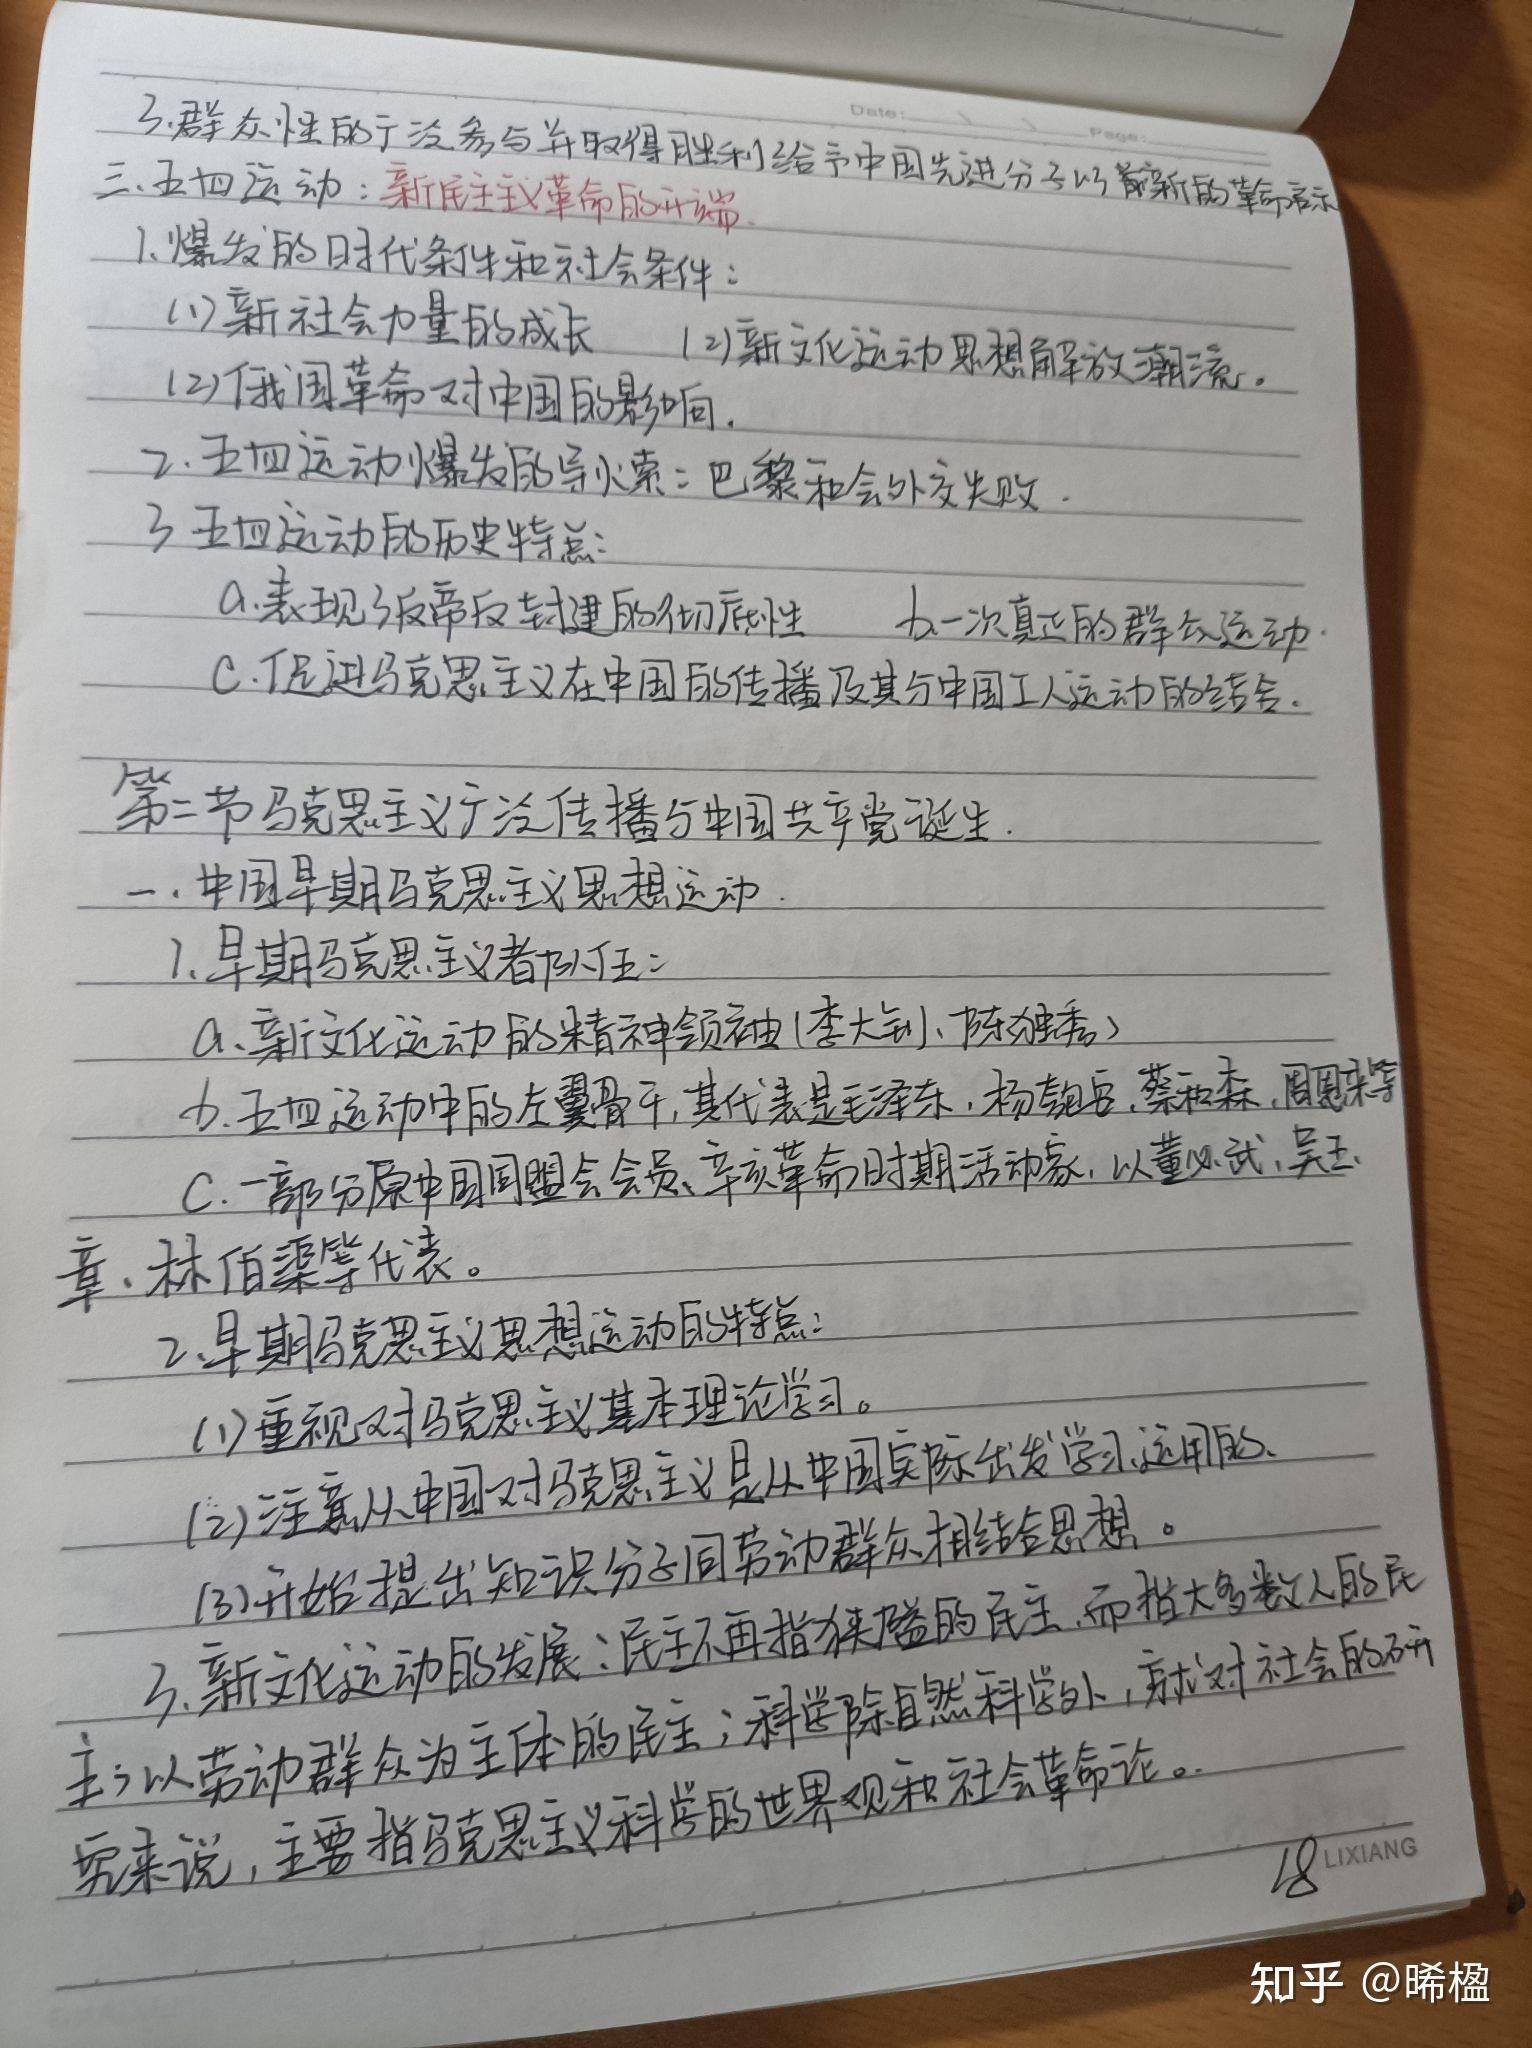 Date: Page:
3.群众性的广泛参与并取得胜利给予中国先进分子以新的革命启示
三.五四运动:新民主主义革命的开端.
1.爆发的时代条件和社会条件:
(1)新社会力量的成长 (2)新文化运动思想解放潮流。
(2)俄国革命对中国的影响.
2.五四运动爆发的导火索:巴黎和会外交失败.
3 五四运动的历史特点:
a.表现了反帝反封建的彻底性 b.一次真正的群众运动.
c.促进马克思主义在中国的传播及其与中国工人运动的结合.
第二节马克思主义广泛传播与中国共产党诞生.
一.中国早期马克思主义思想运动.
1.早期马克思主义者队伍:
a.新文化运动的精神领袖(李大钊、陈独秀)
b.五四运动中的左翼骨干,其代表是毛泽东.杨匏安.蔡和森.周恩来等
c.一部分原中国同盟会会员、辛亥革命时期活动家.以董必武,吴玉
章、林伯渠等代表。
2.早期马克思主义思想运动的特点:
(1)重视对马克思主义基本理论学习。
(2)注意从中国对马克思主义是从中国实际出发学习、运用的、
(3)开始提出知识分子同劳动群众相结合思想。
3.新文化运动的发展:民主不再指狭隘的民主.而指大多数人的民
主;以劳动群众为主体的民主;科学除自然科学外,就对社会的研
究来说,主要指马克思主义科学的世界观和社会革命论。
18 LIXIANG
知乎 @晞楹